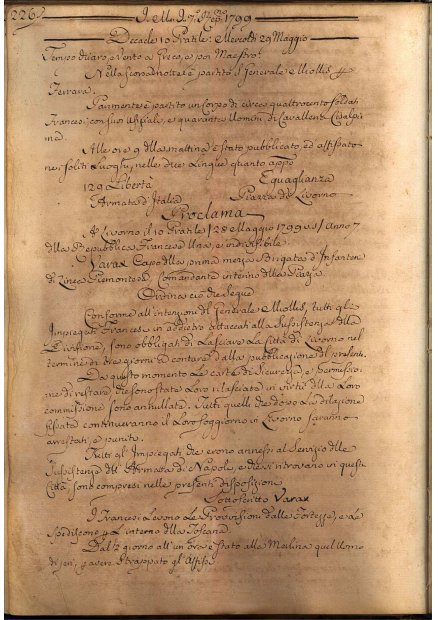 226
1799
Decade 10 Pratile: Mercoldì 29 Maggio
Tempo chiaro, e Vento a Greco, e poi Maestro.
Nella scorsa notte è partito il Generale Miollis p
Ferrara.
Parimente è partito un Corpo di circa quattrocento soldati
Francesi, con suoi Uffiziali, e quaranta Uomini di Cavalleria Cisalpi
na.
Alle ore 9 della mattina è stato pubblicato, ed affissato
nei soliti Luoghi, nelle due Lingue quanto app.o
129 Libertà Equaglianza
Armata d'Italia Piazza di Livorno
Proclama
A Livorno il 10 Pratile (29 Maggio 1799 v.s.) Anno 7
della Repubblica Francese Una, e indivisibile
Varax Capo della prima mezza Brigata d'Infanteria
di Linea Piemontese, Comandante interino della Piazza
Ordina ciò che segue
Conforme all'intenzioni del Generale Miollis, tutti gl'
Impiegati Francesi in addietro attaccati alla Sussistenza della
Divisione, sono obbligati di Lasciare La Città di Livorno nel
termine di tre giorni a contare dalla pubblicazione del presente.
Da questo momento Le carte di Sicurezza, e permissio-
ne di restare, che sono state Loro rilasciate in virtù della Loro
commissione sono annullate. Tutti quelli che dopo La dilazione
fissata continueranno il Loro soggiorno in Livorno saranno
arrestati, e puniti.
Tutti gl'Impiegati, che erano annessi al Servizio delle
Sussistenze dell'Armata di Napoli, e che si ritrovano in questa
Città, sono compresi nelle presenti disposizioni
Sottoscritto Varax
I Francesi Levono Le Provvisioni dalle Fortezze, e Le
spediscono p L'interno della Toscana
Dal giorno all'un'ora è stato alla Berlina quel Uomo
di jeri, p aver strappato gl'Affissi